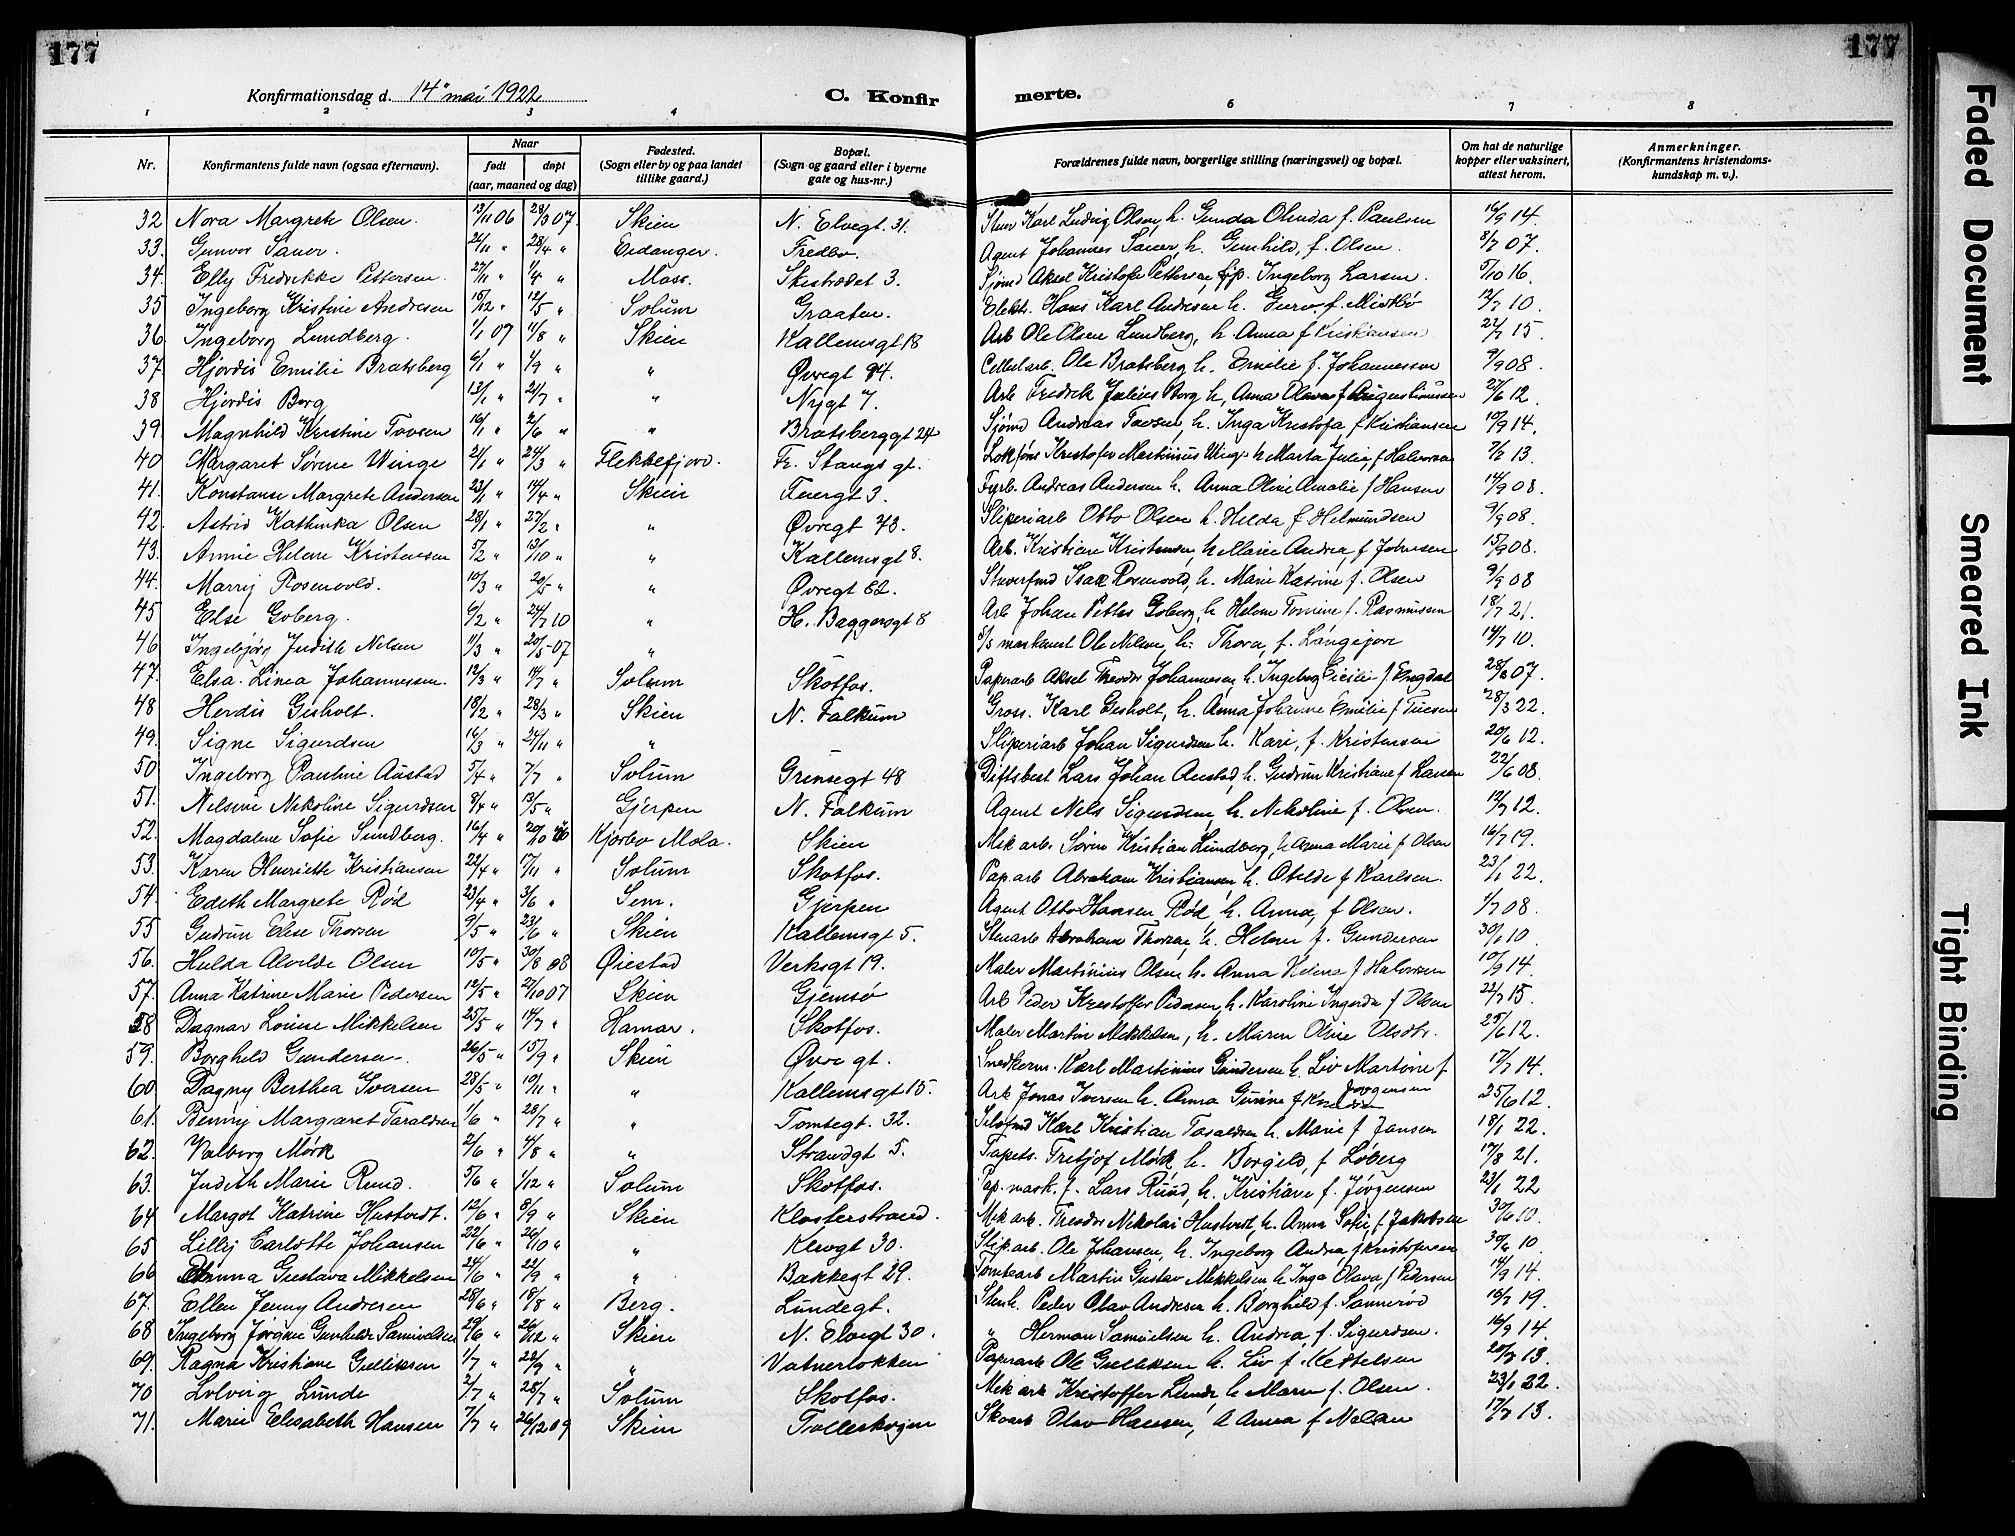 177
177
Konfirmationsdag d. 14 mai 1922
C. Konfirmerte.
1 2 3 4 5 6 7 8
Nr. Konfirmantens fulde navn (ogsaa efternavn). Naar født døpt (aar, maaned og dag) Fødested. (Sogn eller by og paa landet tillike gaard.) Bopæl. (Sogn og gaard eller i byerne gate og hus-nr.) Forældrenes fulde navn, borgerlige stilling (næringsvei) og bopæl. Om hat de naturlige kopper eller vaksinert, attest herom. Anmerkninger. (Konfirmantens kristendoms-kundskap m. v.).
32 Nora Margrete Olsen. 13/11 06 28/3 07. Skien N. Elvegt. 31. Karl Ludvig Olsen, h. Gunda Olinda f. Paulsen 16/9 14.
33. Gunvor Sauer. 21/11 " 28/4 " Eidanger. Fredbo. Agent Johannes Sauer, h. Gunhild, f. Olsen. 8/7 07.
34. Elly Fredrikke Pettersen. 27/11 " 1/4 " Moss. Skistrædet 3. Sjømd Aksel Kristofer Pettersen, Ingeborg Larsen. 5/10 16.
35 Ingeborg Kristine Andresen 15/12 " 12/5 " Solum Graaten. Elektr. Hans Karl Andresen h. Guro f. Mistbø 12/7 10.
36. Ingeborg Lundberg. 1/1 07 11/8 " Skien Kallemsgt 18 Arb Ole Olsen Lundberg, h. Anna f Kristiansen 22/7 15.
37. Hjørdis Emilie Bratsberg 6/1 " 1/9 " " Øvregt 94. Cellul arb. Ole Bratsberg h. Emilie f. Johannessen 9/9 08.
38 Hjørdis Borg 13/1 " 21/7 " " Nygt 7. Arb Fredrik Julius Borg h, Anna Olava f Augustinussen 27/6 12.
39. Magnhild Kristine Tovsen 16/1 " 2/6 " " Bratsberggt 24 Sjømd Andreas Tovsen, h. Inga Kristofa f Kristiansen 10/9 14.
40 Margaret Sørine Winge 21/1 " 24/3 " Flekkefjord. Fr. Stangs gt. Kristofer Martinius Winge h Marta Julie, f Halvorsen 7/2 13
41. Konstanse Margrete Andersen 23/1 " 14/4 " Skien Fuergt 3. Fyrb. Andreas Andersen h. Anna Oline Amalie f Hansen 14/9 08.
42. Astrid Kathinka Olsen 28/1 " 27/2 " " Øvregt 73. Sliperiarb Otto Olsen h. Helda f Helmundsen 9/9 08.
43. Annie Helene Kristensen 5/2 " 13/10 " " Kallemsgt 8. Arb. Kristian Kristensen, h Marie Andrea f Johnsen 15/9 08.
44. Marry Rosenvold. 10/3 " 20/5 " " Øvregt 62. Isak Rosenvold, h. Marie Katrine f. Olsen 9/9 08
45 Else Goberg. 6/2 " 24/7 10 " H. Baggersgt 8 Arb Johan Petter Goberg, h Helene Tomine f. Rasmussen 18/7 21.
46 Ingebjørg Judith Nelsen 11/3 " 20/5 07 " S/S maskinist Ole Nilsen h. Thora, f. Langejore 14/7 10.
47. Elsa Linea Johannessen. 12/3 " 14/7 " Solum Skotfos. Papirarb Aksel Theodor Johannesen, h. Ingeborg f. Engdal 28/6 07.
48 Herdis Gisholt. 18/2 " 28/3 " Skien N. Falkum Gross. Karl Gisholt, h. Anna Johanne Emilie f 28/3 22.
49. Signe Sigurdsen 16/3 " 24/11 " " Sliperiarb Johan Sigurdsen h. Kari, f. Kristensen 20/6 12.
50 Ingeborg Pauline Austad 5/4 " 7/7 " Solum Grensegt 48 Driftsbest Lars Johan Austad, h. Gudrun Kristiane f Larsen 22/6 08.
51. Nelsine Nikoline Sigurdsen 9/4 " 13/5 " Gjerpen N. Falkum Agent Nels Sigurdsen, h. Nikoline f. Olsen. 12/7 12.
52. Magdalene Sofie Lundberg. 16/4 " 20/10 Kjørbo Mola. Skien Mek arb. Søren Kristian Lundberg, h Anna Marie f Olsen 16/7 19.
53. Karen Henriette Kristiansen 22/4 " 17/11 " Solum Skotfos. Pap. arb Abraham Kristiansen h. Otelde f Karlsen. 23/1 22.
54. Edith Margrete Rød 23/4 " 3/6 " Sem. Gjerpen Agent Otto Hansen Rød, h. Anna, f Olsen. 1/7 08.
55 Gudrun Elise Thorsen 9/5 " 23/6 " Skien Kallemsgt 5. Stenarb Abraham Thorsen, h. Helene f. Gundersen 30/6 10.
56. Hulda Alvilde Olsen 10/5 " 30/8 08 Øiestad Verksgt 19. Maler Martinius Olsen h. Anna Helene f Halvorsen 10/9 14.
57. Anna Katrine Marie Pedersen 12/5 " 27/10 07 Skien Gjemsø Arb Peder Kristoffer Pedersen, h. Karoline Ingerda f Olsen 22/7 15.
58 Dagnar Louise Mikkelsen 25/5 " 14/7 " Hamar. Skotfos. Maler Martin Mikkelsen, h. Maren Oline Olsdtr. 25/6 12.
59. Borghild Gundersen. 26/5 " 15/9 " Skien Øvre gt. Snedkerm. Karl Martinius Gundersen h. Liv Martine f Jørgensen 17/7 14.
60 Dagny Berthea Iversen 28/5 " 10/11 " " Kallemsgt 15. Arb Jonas Iversen h. Anna Gurine f 25/6 12.
61. Benny Margaret Taraldsen 1/6 " 28/7 " " Tomtegt. 32. Karl Kristian Taraldsen h. Marie f Jansen 18/1 22.
62. Valborg Mørk 2/6 " 4/8 " " Strandgt 5. Tapets. Tretjof Mørk, h. Borgild, f Løberg 17/8 21.
63. Judith Marie Ruud. 5/6 " 1/12 " Solum Skotfos. Pap. mask. f. Lars Ruud, h. Kristiane f. Jørgensen 23/1 22
64 Margot Katrine Hustvedt. 12/6 " 8/9 " Skien Klosterstrand. Mek arb. Theodor Nikolai Hustvedt, h. Anna Sofie, f Jakobsen 30/6 10.
65. Lilly Carlotte Johansen 22/6 " 26/10 " " Klevgt 30. Slip. arb. Ole Johansen, h. Ingeborg Andrea f Kristofersen 30/6 10
66 Anna Gustava Mikkelsen 24/6 " 22/9 " " Bakkegt 29. Tomtearb Martin Gustav Mikkelsen h. Inga Olava f Pedersen 14/9 14.
67. Ellen Jenny Andresen 28/6 " 18/8 " Berg. Lundegt. Stenh. Peder Olav Andresen h. Borghild f. Sannerød 10/7 19.
68 Ingeborg Jørgine Gunhilde Samuelsen 29/6 " 26/12 " Skien N. Elvegt 30. " Herman Samuelsen h. Andrea f. Sigurdsen. 16/9 14.
69. Ragna Kristiane Gulliksen 1/7 " 22/9 " " Vatnerløkken Papirarb Ole Gulliksen h. Liv f. Kettelsen 20/3 13.
70 Solveig Lunde 2/7 " 28/7 " Solum Skotfos. Mek arb Kristoffer Lunde h Maren f. Olsen. 23/1 22.
71. Marie Elisabeth Hansen 7/7 " 26/12 09 Skien Tollerkogen Skoarb Olav Hansen, h Anna f Nelsen 17/7 13.
Faded Document
Smeared Ink
Tight Binding